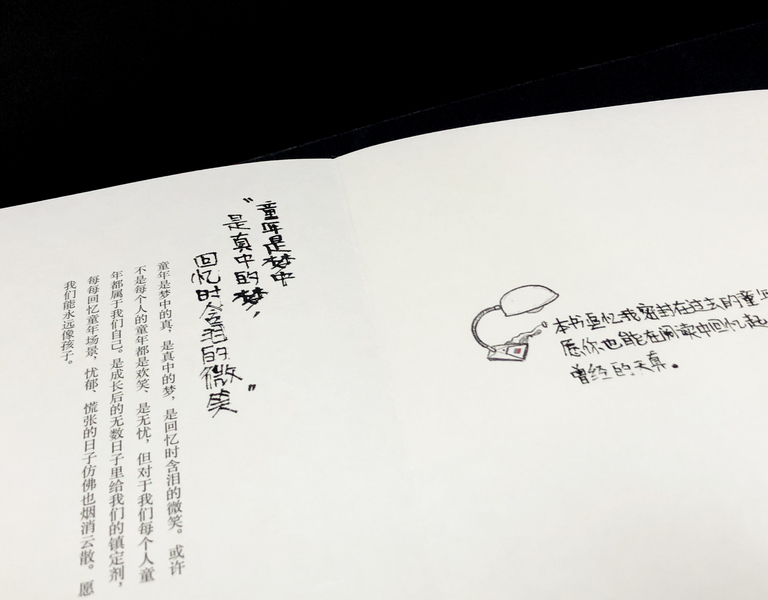 “童年是梦中
是真中的梦，
回忆时含泪的微笑”
童年是梦中的真，是真中的梦，是回忆时含泪的微笑。或许
不是每个人的童年都是欢笑、是无忧，但对于我们每个人童
年都属于我们自己。是成长后的无数日子里给我们的镇定剂，
每每回忆童年场景，忧郁、慌张的日子仿佛也烟消云散。愿
我们能永远像孩子。
本书回忆我密封在过去的童年
愿你也能在阅读中回忆起
曾经的天真。